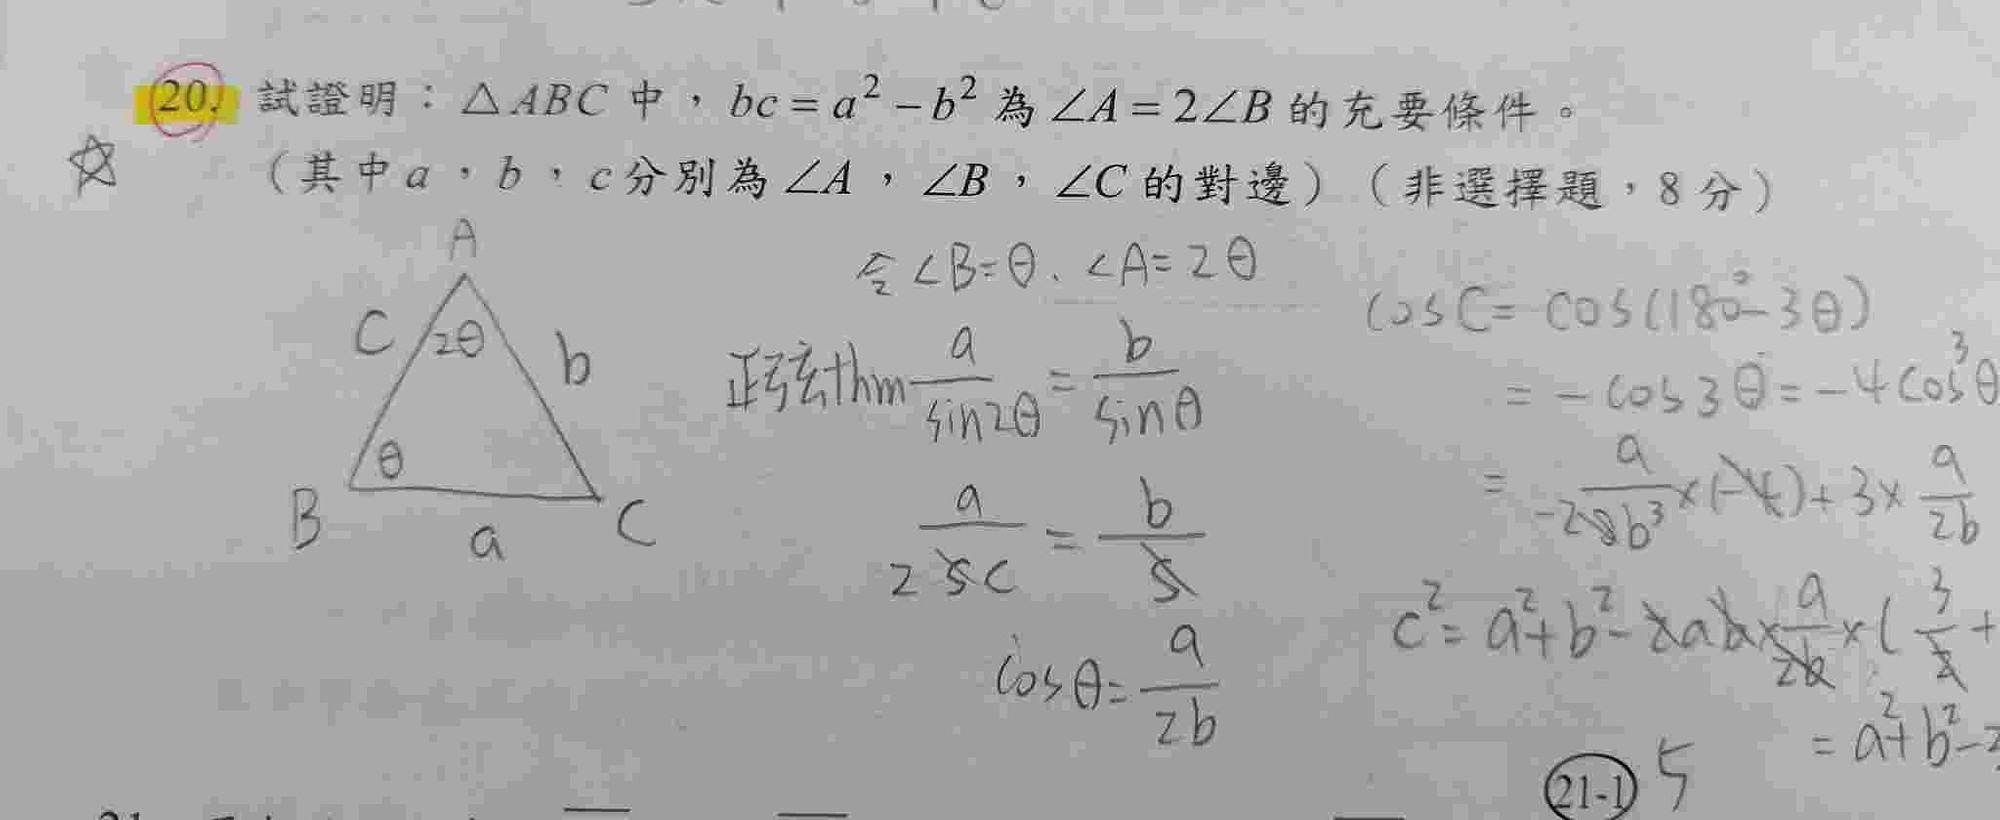 20. 試證明：△ABC 中，bc = a² − b² 為 ∠A = 2∠B 的充要條件。
（其中 a，b，c 分別為 ∠A，∠B，∠C 的對邊）（非選擇題，8 分）
A
C
2θ
b
θ
B
a
C
令∠B=θ、∠A=2θ
正弦thm a/sin2θ = b/sinθ
a/2sc = b/s
cosθ = a/2b
cosC = cos(180°-3θ)
= -cos3θ = -4cos³θ
= a/-28b³ × (-4) + 3 × a/2b
c² = a² + b² - 2ab × a/2b × ( 3/2 +
= a² + b² -
21-1 5